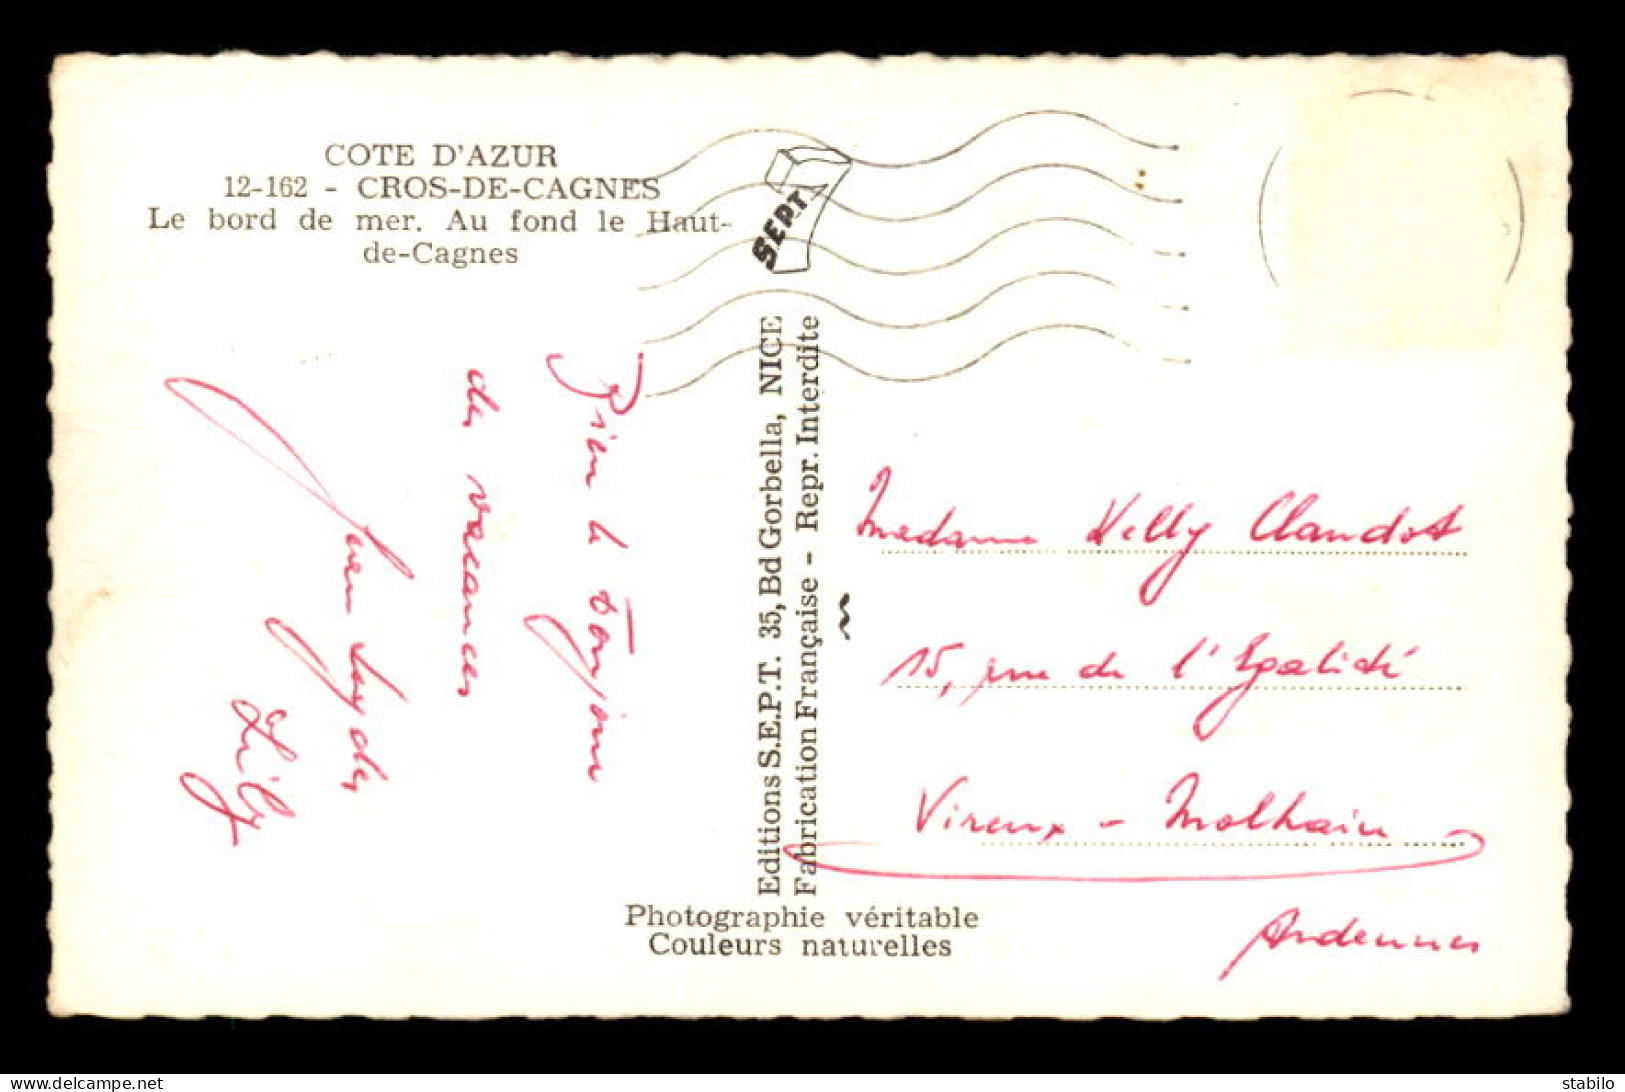 COTE D'AZUR
12-162 - CROS-DE-CAGNES
Le bord de mer. Au fond le Haut-
de-Cagnes
SEPT
Bien le bonjour
des vacances
Lily
Editions S.E.P.T. 35, Bd Gorbella, NICE
Fabrication Française - Repr. Interdite
Madame Nelly Claudot
15, rue de l'Egalité
Vireux - Molhain
Ardennes
Photographie véritable
Couleurs naturelles
stabilo